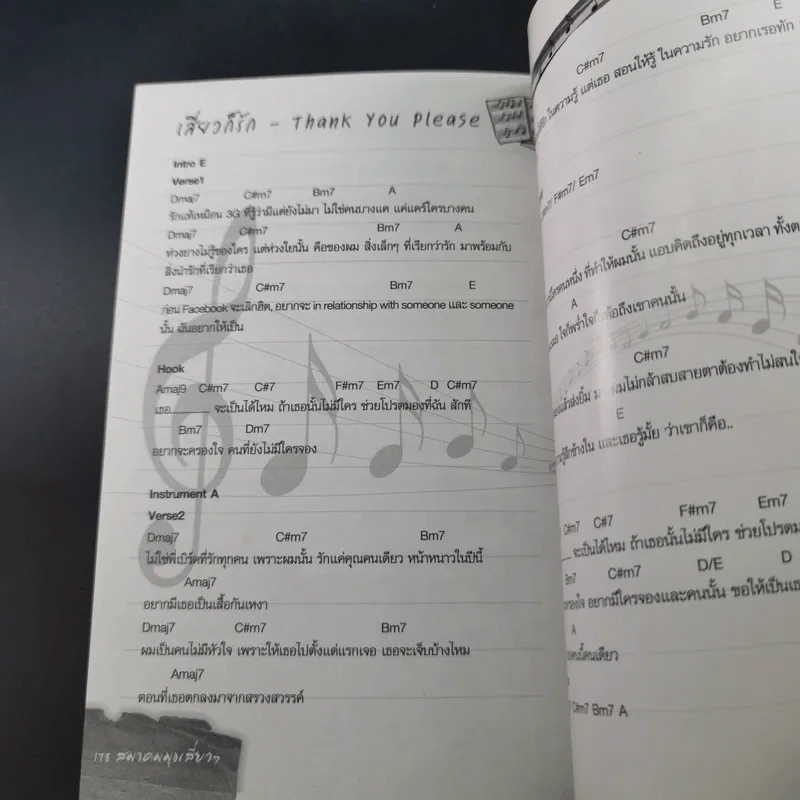 เสี่ยวก็รัก - Thank You Please
Intro E
Verse1
Dmaj7 C#m7 Bm7 A
รักแท้เหมือน 3G ที่รู้ว่ามีแต่ยังไม่มา ไม่ใช่คนบางแค แค่แคร์ใครบางคน
Dmaj7 C#m7 Bm7 A
ห่วงยางไม่รู้ของใคร แต่ห่วงใยนั้น คือของผม สิ่งเล็กๆ ที่เรียกว่ารัก มาพร้อมกับ
สิ่งน่ารักที่เรียกว่าเธอ
Dmaj7 C#m7 Bm7 E
ก่อน Facebook จะเลิกฮิต, อยากจะ in relationship with someone และ someone
นั้น ฉันอยากให้เป็น
Hook
Amaj9 C#m7 C#7 F#m7 Em7 D C#m7
เธอ.............. จะเป็นได้ไหม ถ้าเธอนั้นไม่มีใคร ช่วยโปรดมองที่ฉัน สักที
Bm7 Dm7
อยากจะครองใจ คนที่ยังไม่มีใครจอง
Instrument A
Verse2
Dmaj7 C#m7 Bm7
ไม่ใช่พี่เบิร์ดที่รักทุกคน เพราะผมนั้น รักแค่คุณคนเดียว หน้าหนาวในปีนี้
Amaj7
อยากมีเธอเป็นเสื้อกันเหงา
Dmaj7 C#m7 Bm7
ผมเป็นคนไม่มีหัวใจ เพราะให้เธอไปตั้งแต่แรกเจอ เธอจะเจ็บบ้างไหม
Amaj7
ตอนที่เธอตกลงมาจากสรวงสวรรค์
178 สมาคมมุขเสี่ยวๆ
C#m7 Bm7 E
ในความรู้ แต่เธอ สอนให้รู้ ในความรัก อยากเธอทัก
F#m7/ Em7
C#m7
ใครคนหนึ่ง ที่ทำให้ผมนั้น แอบคิดถึงอยู่ทุกเวลา ทั้งต
A
ใจก็พร่ำ ถึงเขาคนนั้น
C#m7
แล้วส่งยิ้ม ผมไม่กล้าสบสายตาต้องทำไม่สนใ
E
รู้สึกข้างใน และเธอรู้มั้ย ว่าเขาก็คือ..
C#m7 C#7 F#m7 Em7
จะเป็นได้ไหม ถ้าเธอนั้นไม่มีใคร ช่วยโปรดม
Bm7 C#m7 D/E D
ครองใจ อยากมีใครจองและคนนั้น ขอให้เป็นเธ
A
คนนี้คนเดียว
C#m7 Bm7 A